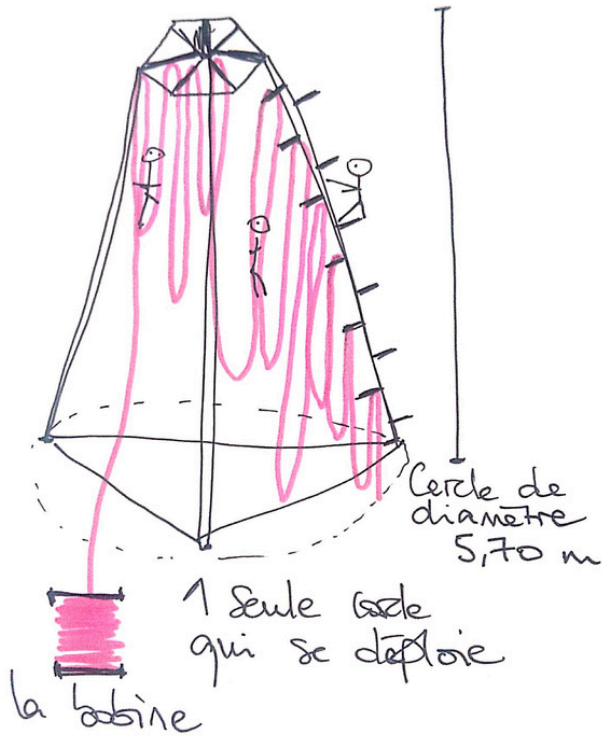 Cercle de
diamètre
5,70 m
1 seule corde
qui se déploie
la bobine